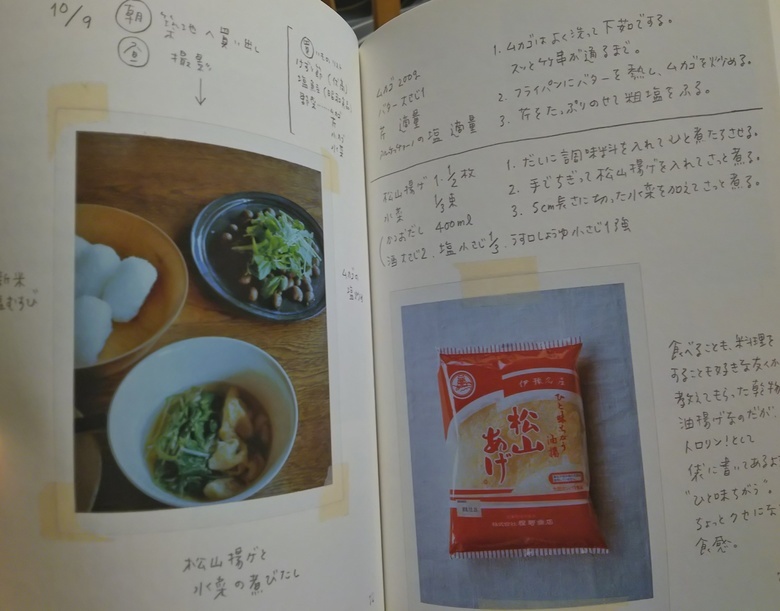 10/9
朝
へ買い出し
昼
撮影
新米
塩むすび
ムカゴの
松山揚げと
水菜の煮びたし
ムカゴ 200g
バター 大さじ1
芹 適量
の塩 適量
1. ムカゴはよく洗って下茹でする。
スッと竹串が通るまで。
2. フライパンにバターを熱し、ムカゴを炒める。
3. 芹をたっぷりのせて粗塩をふる。
松山揚げ 1・1/2枚
水菜 1/3束
かつおだし 400ml
酒大さじ2、塩小さじ1/3、うす口しょうゆ小さじ1強
1. だしに調味料を入れてひと煮たちさせる。
2. 手でちぎって松山揚げを入れてさっと煮る。
3. 5cm長さに切った水菜を加えてさっと煮る。
伊予名産
ひと味ちがう
油揚
松山
あげ
食べることも、料理を
することも好きな友人か
教えてもらった乾物
油揚げなのだが、
トロリン!として
袋に書いてあるよ
"ひと味ちがう"。
ちょっとクセにな
食感。